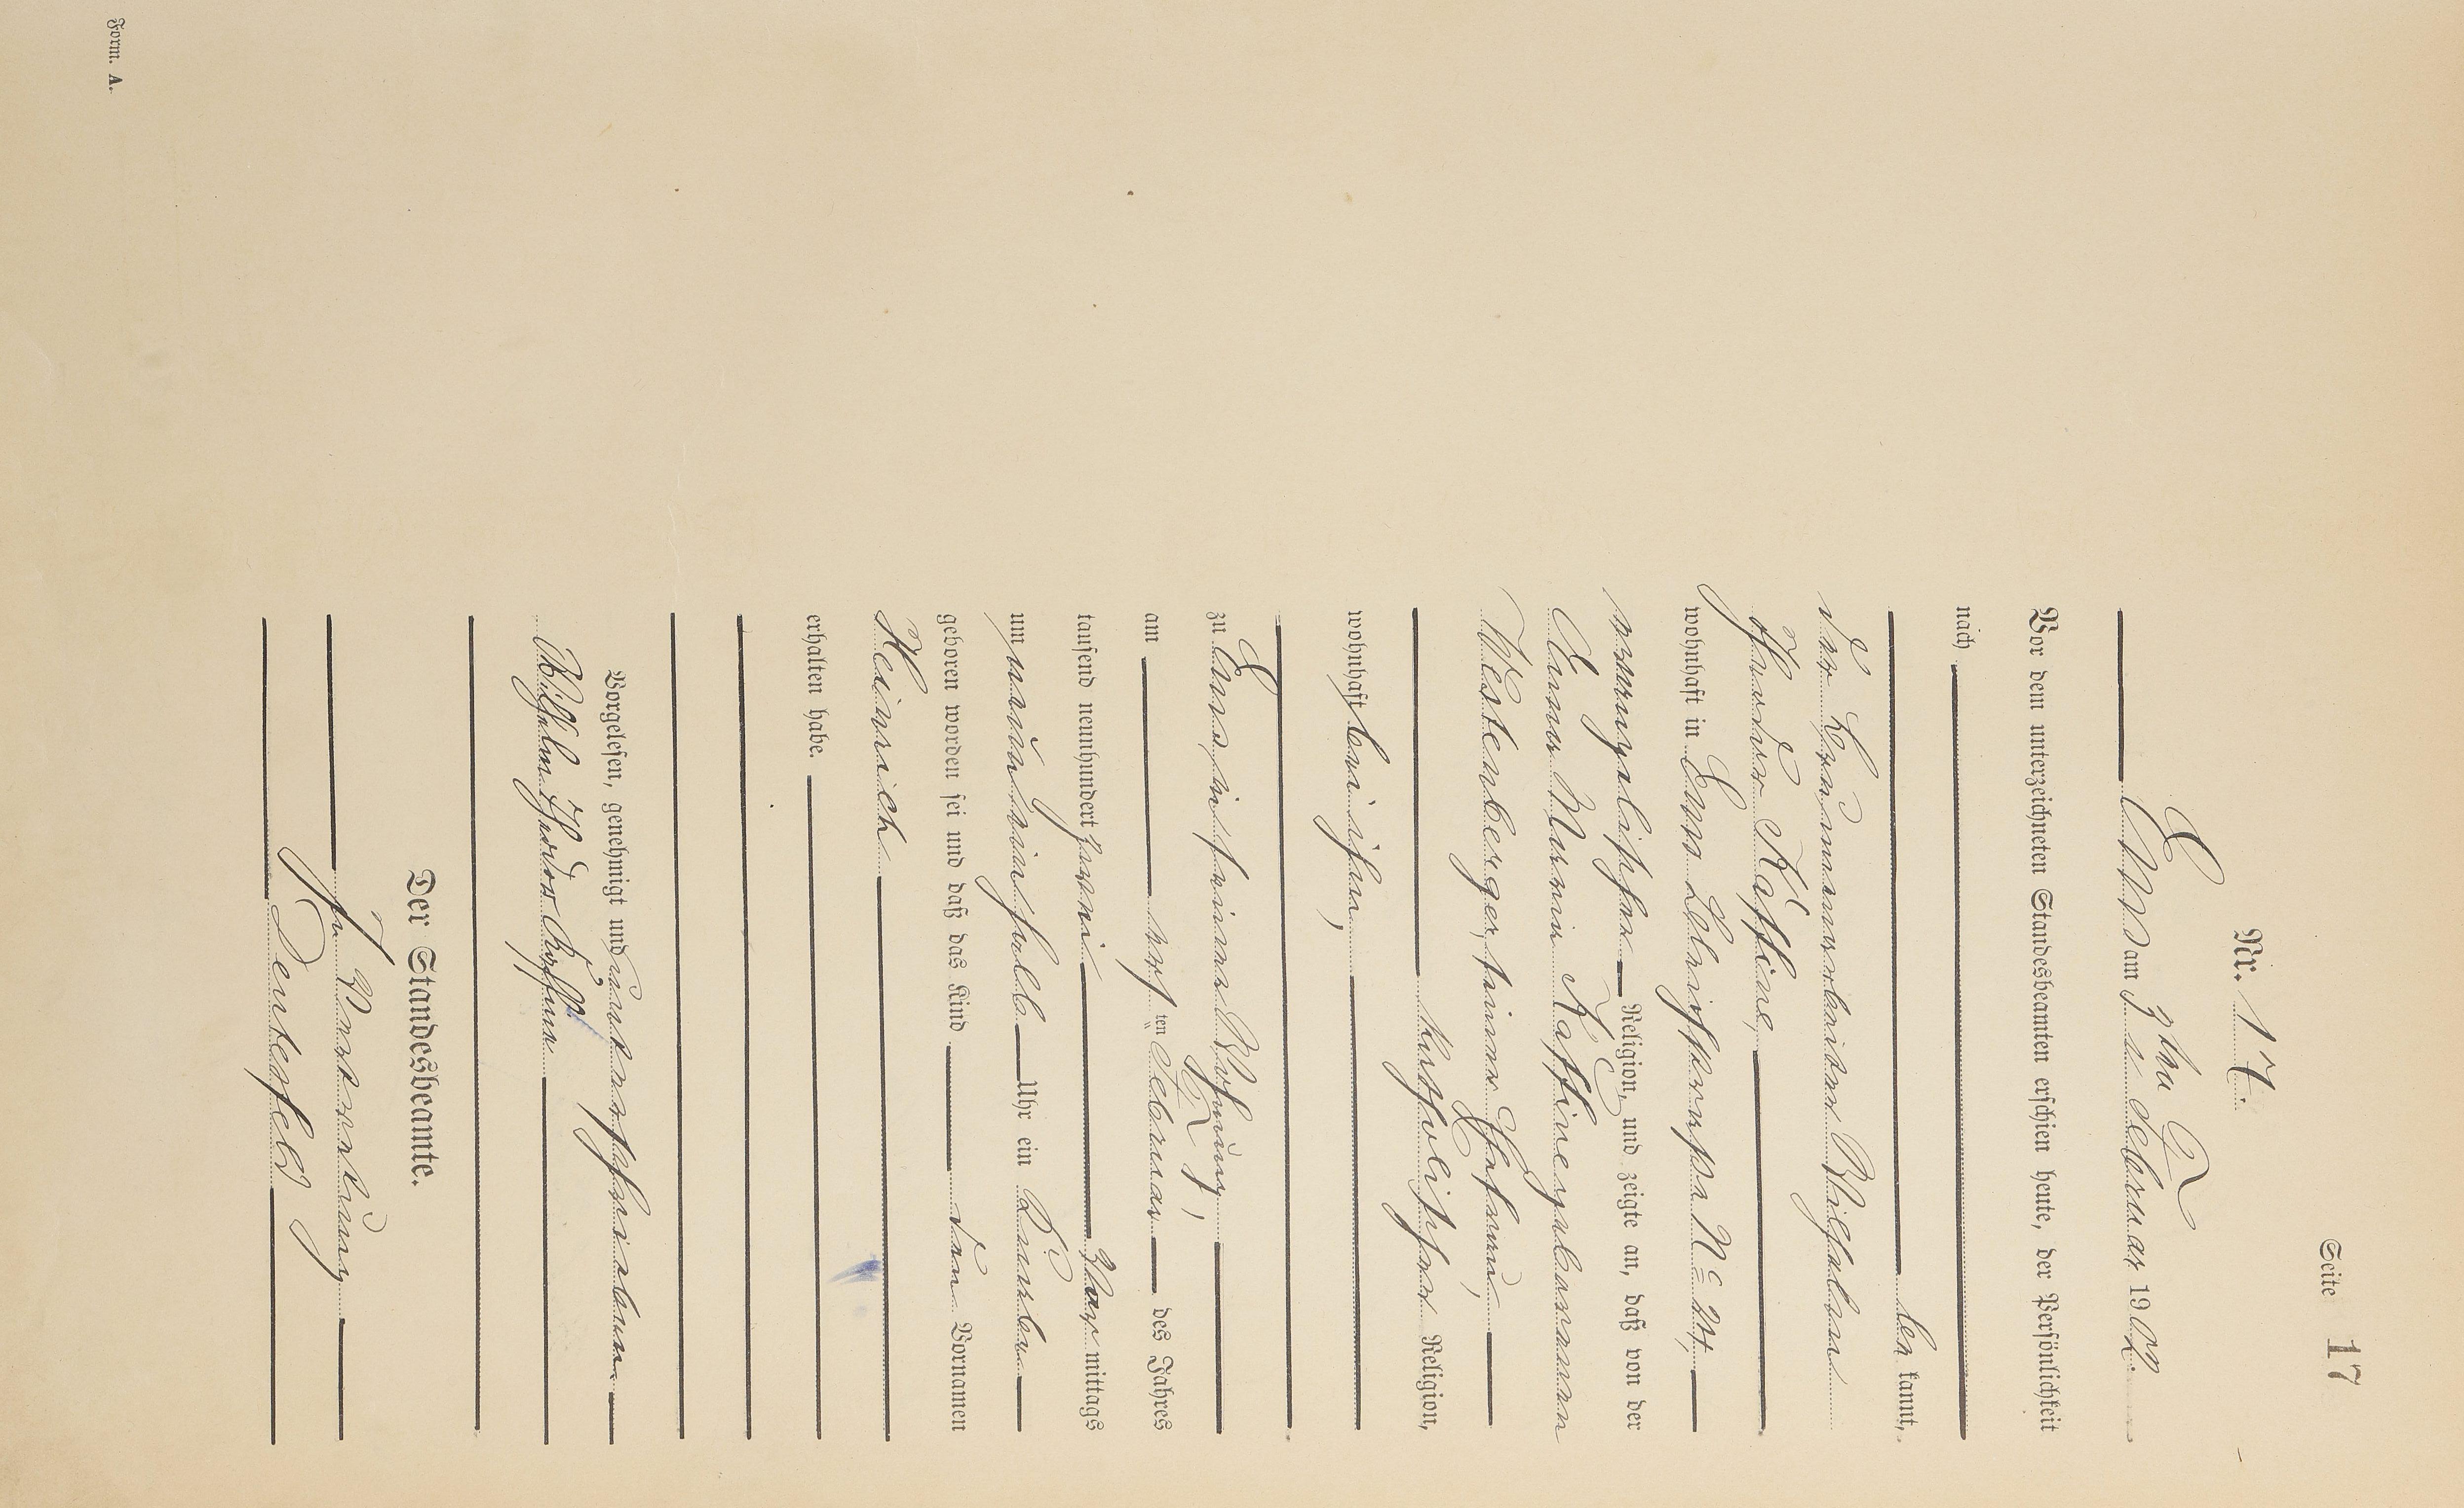 Seite 17
Nr. 17.
Ems am 3ten Februar 1902.
Vor dem unterzeichneten Standesbeamten erschien heute, der Persönlichkeit
nach
be kannt,
der
Wilhelm
Theodor Kaffine,
wohnhaft in Ems
No 24,
evangelischer Religion, und zeigte an, daß von der
Anna Maria Kaffine geborenen
Westenberger, seiner Ehefrau,
katholischer Religion,
wohnhaft bei ihm,
zu Ems, in seiner Wohnung,
am ersten Februar des Jahres
tausend neunhundert zwei Vor mittags
um neun ein halb Uhr ein Knabe
geboren worden sei und daß das Kind den Vornamen
Heinrich
erhalten habe.
Vorgelesen, genehmigt und unterschrieben
Wilhelm Theodor Kaffine
Der Standesbeamte.
In Vertretung
Form. A.